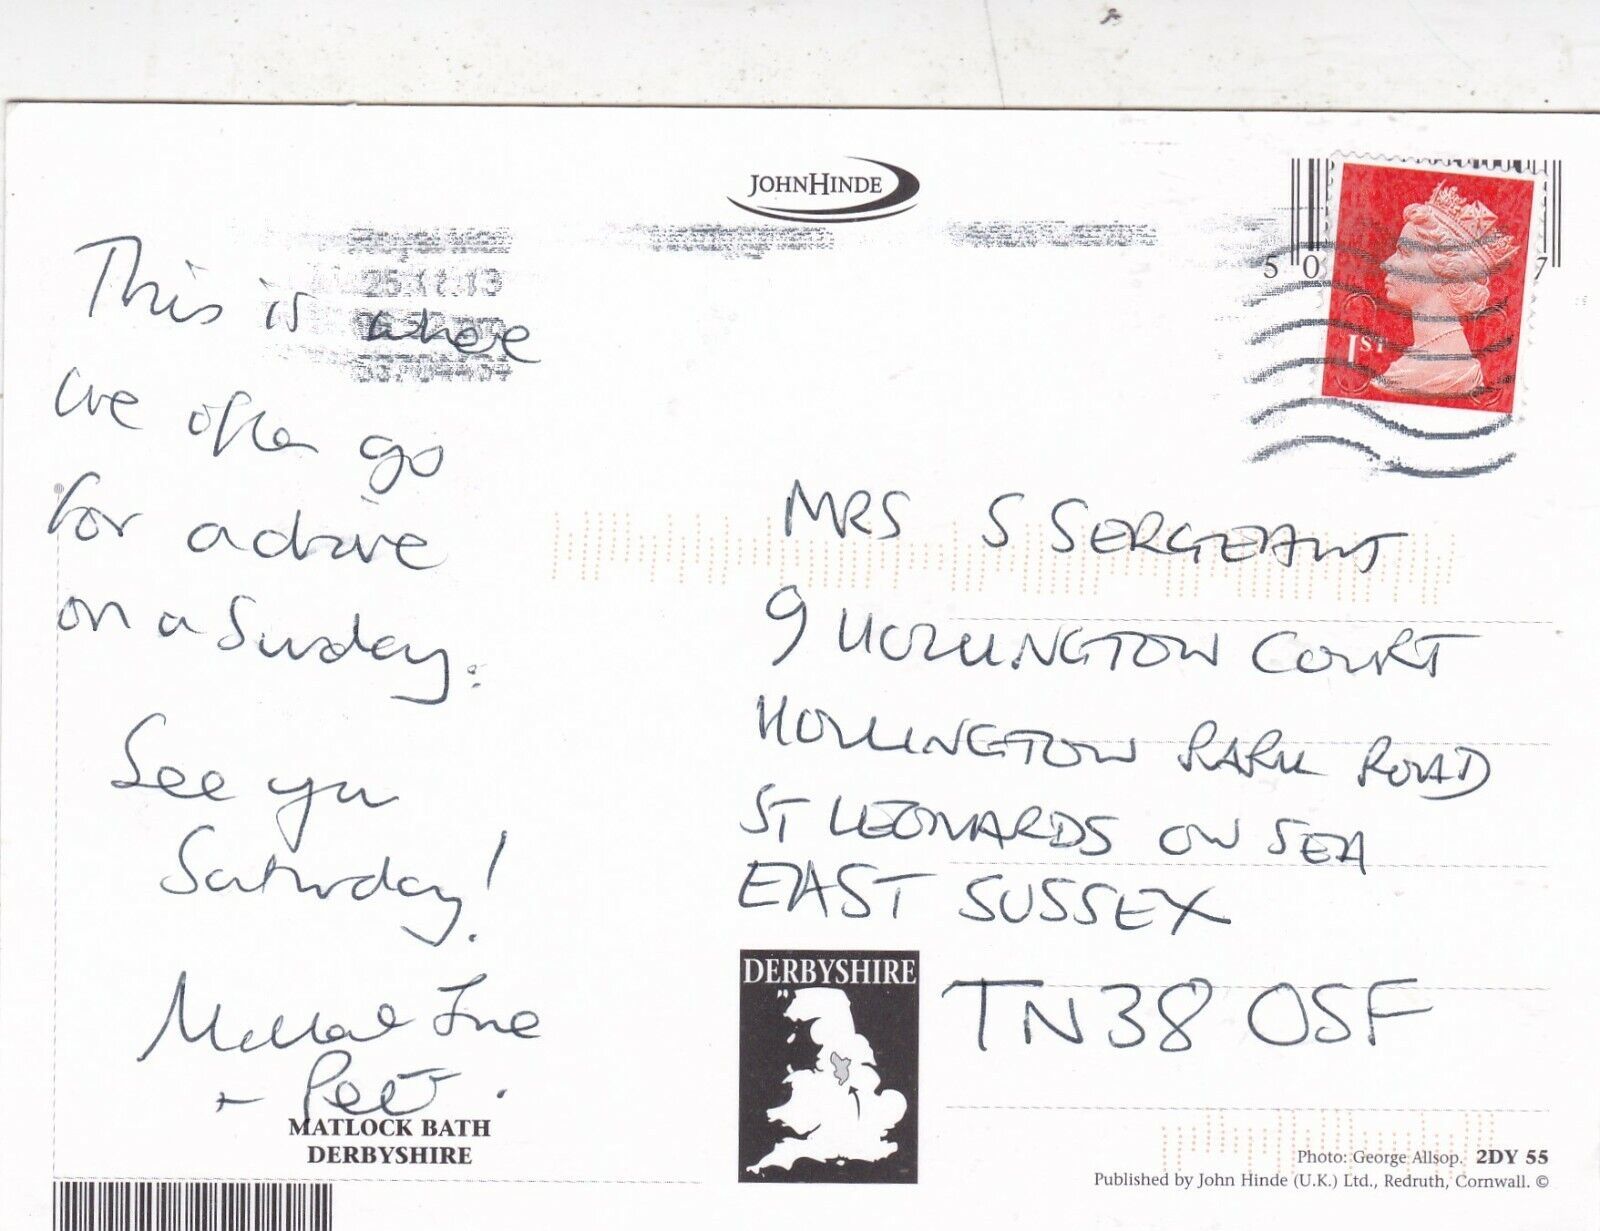 JOHNHINDE
25.11.13
This is where
we often go
for a drive
on a Sunday.
See you
Saturday!
+ Pete.
MATLOCK BATH
DERBYSHIRE
5 0 7
1ST
MRS S SERGEANT
9 HOLLINGTON COURT
HOLLINGTON PARK ROAD
ST LEONARDS ON SEA
EAST SUSSEX
TN38 0SF
DERBYSHIRE
Photo: George Allsop. 2DY 55
Published by John Hinde (U.K.) Ltd., Redruth, Cornwall. ©